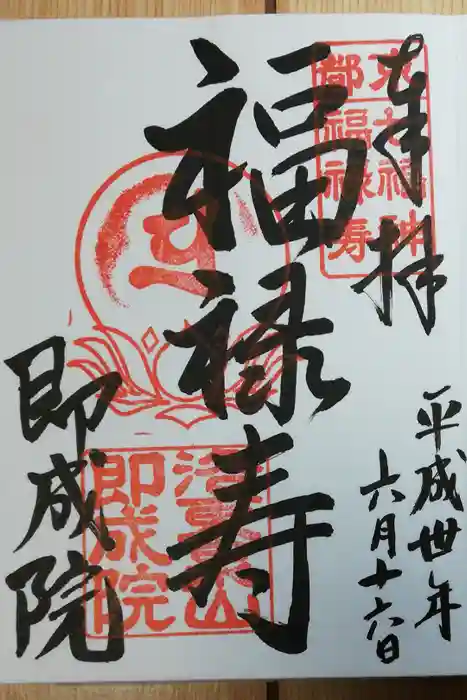 奉拝
平成丗年
六月十六日
福禄寿
即成院
京都
七福神
福禄寿
即成院